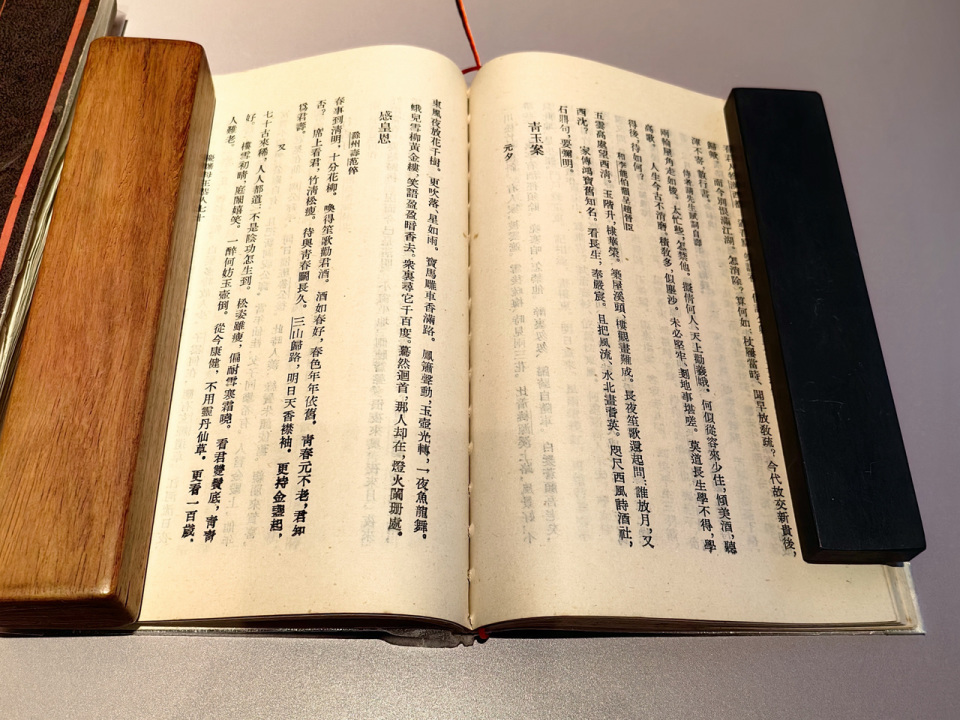 歸歟。　而今別恨滿江湖。怎消除？算何如、杖屨當時、聞早放教疏？今代故交新貴後，
渾不寄，數行書。
侍者請先生賦詞自壽
兩輪屋角走如梭。太忙些，怎禁他。擬倩何人、天上勸羲娥。何似從容來少住，傾美酒，聽
高歌。　人生今古不消磨。積教多，似塵沙。未必堅牢、剗地事堪嗟。莫道長生學不得，學
得後，待如何？
和李能伯韻呈趙晉臣
五雲高處望西清。玉階升，棣華榮。築屋溪頭、樓觀畫難成。長夜笙歌還起問：誰放月，又
西沈？　家傳鴻寶舊知名。看長生，奉嚴宸。且把風流、水北畫耆英。咫尺西風詩酒社，
石鼎句，要彌明。
青玉案
元夕
東風夜放花千樹。更吹落、星如雨。寶馬雕車香滿路。鳳簫聲動，玉壺光轉，一夜魚龍舞。
蛾兒雪柳黃金縷，笑語盈盈暗香去。衆裏尋它千百度。驀然迴首，那人却在，燈火闌珊處。
感皇恩
滁州壽范倅
春事到清明，十分花柳。喚得笙歌勸君酒。酒如春好，春色年年依舊。青春元不老，君知
否？　席上看君，竹清松瘦。待與青春鬬長久。三山歸路，明日天香襟袖。更持金盞起，
爲君壽。
又
七十古來稀，人人都道。不是陰功怎生到。松姿雖瘦，偏耐雪寒霜曉。看君雙鬢底，青青
好。　樓雪初晴，庭闈嬉笑。一醉何妨玉壺倒。從今康健，不用靈丹仙草。更看一百歲，
人難老。